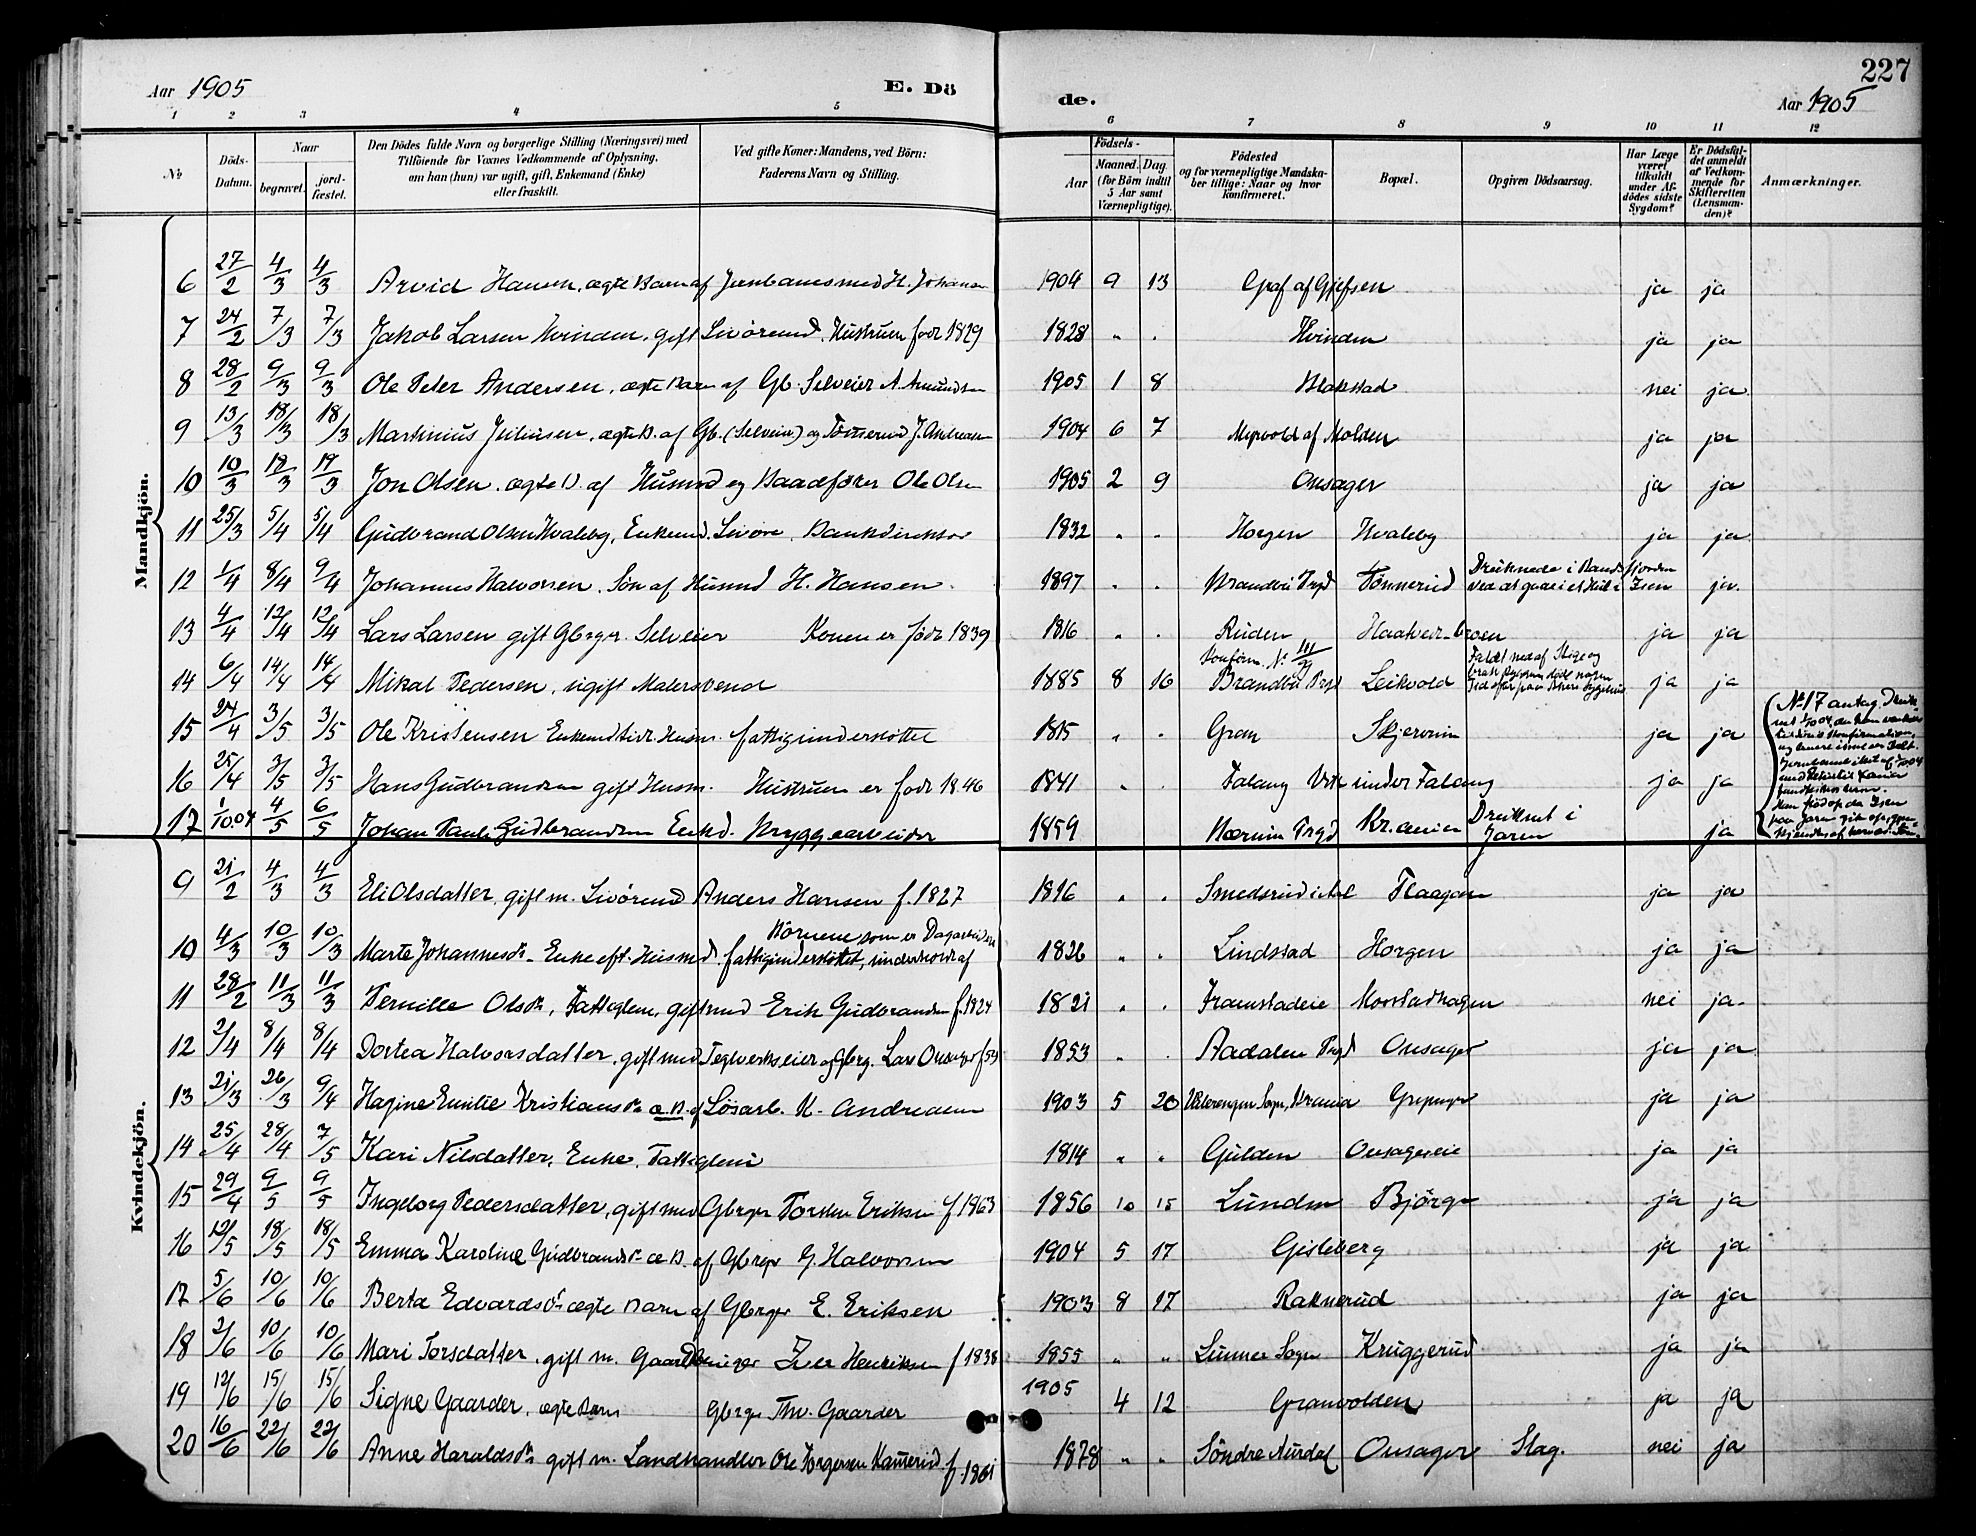 227
Aar 1905 E. Dö de. Aar 1905
1 2 3 4 5 6 7 8 9 10 11 12
No Döds-Datum. Naar begravet. jord-fæstet. Den Dödes fulde Navn og borgerlige Stilling (Næringsvei) med Tilföiende for Voxnes Vedkommende af Oplysning, om han (hun) var ugift, gift, Enkemand (Enke) eller fraskilt. Ved gifte Koner: Mandens, ved Börn: Faderens Navn og Stilling. Födsels- Aar Maaned. Dag. (for Börn indtil 5 Aar samt Værnepligtige). Födested og for værnepligtige Mandskaber tillige: Naar og hvor konfirmeret. Bopæl. Opgiven Dödsaarsag. Har Læge været tilkaldt under Afdödes sidste Sygdom? Er Dödsfaldet anmeldt af Vedkommende for Skifteretten (Lensmanden)? Anmærkninger.
Mandkjön.
6 27/2 4/3 4/3 Arvid Hansen, ægte Barn af Jernbanesmed H. Johansen 1904 9 13 Graf af Gjefsen ja ja
7 24/2 7/3 7/3 Jakob Larsen Hvinden, gift Livörend. Hustruen född 1829 1828 " . Hvinden ja ja
8 28/2 9/3 9/3 Ole Peter Andersen, ægte Barn af Gb. Selveier A. Amundsen 1905 1 8 Blakstad nei ja
9 13/3 18/3 18/3 Martinius Juliusen, ægte B. af Gb. (Selveier) og Tömmermd J. Andreasen 1904 6 7 Myrvold af Molden ja ja
10 10/3 18/3 19/3 Jon Olsen, ægte B. af Husmd og Baadförer Ole Olsen 1905 2 9 Onsager ja ja
11 25/3 5/4 5/4 Gudbrand Olsen Hvaleby, Enkemd. Livöre. Bankdirektör 1832 " . Horgen Hvaleby ja ja
12 1/4 8/4 9/4 Johannes Halvorsen. Sön af Husmd H. Hansen. 1897 . . Brandbu Prgd Tömmerud Druknede i Randsfjorden ved at gaa i et Hul i Isen ja.
13 4/4 12/4 12/4 Lars Larsen gift Gbrger. Selveier Konen er född 1839 1816 " . Ruden Haatvedt-broen ja ja
14 6/4 14/4 14/4 Mikal Pedersen, ugift Malersvend 1885 8 16 Konfirm. No Brandbu Prgd Leikvold Faldt ned af Stige og ja ja
15 24/4 3/5 3/5 Ole Kristensen Enkemd tidl. Husm. fattigunderstöttet 1815 " . Gran Skjervum ja ja
16 25/4 3/5 3/5 Hans Gudbrandsen gift Husm. Hustruen er född 1846 1841 " . Falang under Falang ja ja
17 1/10.04 4/5 6/5 Johan Paul Gudbrandsen Enkd. Bryggearbeider 1859 Nærum Prgd Kr.ania Druknet i Jaren ja
No 17 antag. Druknet 1/10 04, da han
Konfirmation,
Han flöd op da Isen
paa Jaren gik op
Kvindekjön.
9 21/2 4/3 4/3 Eli Olsdatter, gift m. Livörend Anders Hansen f. 1827 1816 " . Smedsrud Flaagen ja ja
10 4/3 10/3 10/3 Marte Johannesdr. Enke eft. Husmd. fattigunderstöttet, underholdt af Börnene som er Dagarbeidere 1826 " . Lindstad Horgen ja ja
11 28/2 11/3 11/3 Pernille Olsdr, Fattiglem, gift med Erik Gudbrandsen f. 1824 1821 " . Framstadeie Morstadhagen nei ja.
12 2/4 8/4 8/4 Dortea Halvorsdatter, gift med Teglverkseier og Gbrg. Lars Onsager f 53 1853 " . Aadalen Prgd Onsager ja ja
13 21/3 26/3 9/4 Hagine Emilie Kristiansdr æ. B. af Lösarb. K. Andreasen 1903 5 20 Vaalerengen Sogn, Krania ja ja
14 25/4 28/4 7/5 Kari Nilsdatter, Enke, Fattiglem 1814 " " Gulden Onsagereie ja ja
15 29/4 9/5 9/5 Ingeborg Pedersdatter, gift med Gbrger Torsten Eriksen f 1863 1856 10 15 Lunden Björge ja ja
16 12/5 18/5 18/5 Emma Karoline Gudbrandsdr æ. B. af Gbrger G. Halvorsen 1904 5 17 Gisleberg ja ja
17 5/6 10/6 10/6 Berta Edvardsdr ægte Barn af Gbrger E. Eriksen 1903 8 17 Raknerud ja ja
18 2/6 10/6 10/6 Mari Torsdatter, gift m. Gaardbruger Iver Henriksen f 1838 1855 " " Lunner Sogn Kruggerud ja ja
19 12/6 15/6 15/6 Signe Gaarder, ægte Barn Gbrger Thv. Gaarder 1905 4 12 Granvolden ja ja
20 16/6 22/6 22/6 Anne Haraldsdr gift m. Landhandler Ole Torgersen f. 1861 1878 " " Söndre Aurdal Onsager Slag. nei ja